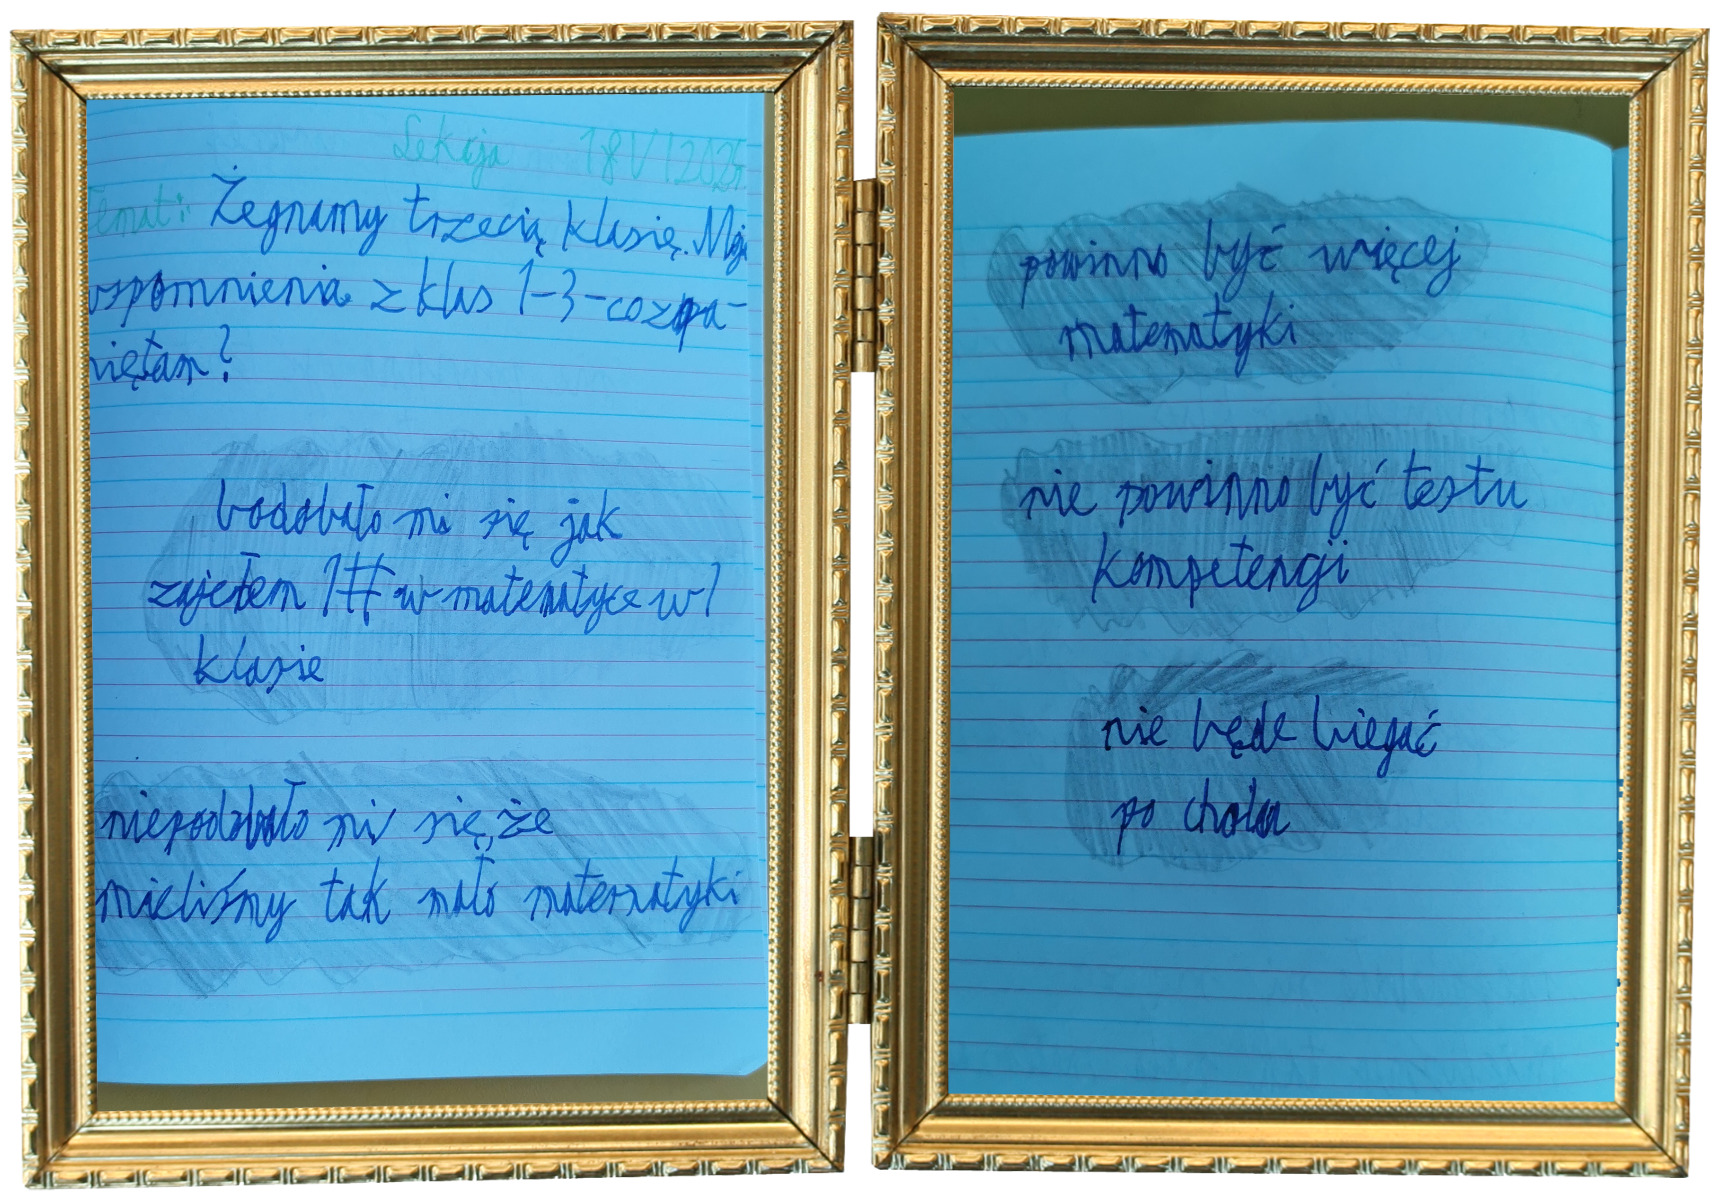 Lekcja 18 VI 2024
Temat: Żegnamy trzecią klasię. Moje
wspomnienia z klas 1-3-cozapa-
miętam?
bodobało mi się jak
zajełem 1# w matematyce w 1
klasie
niepodobało mi się, że
mieliśmy tak mało matematyki
powinno być więcej
matematyki
nie powinno być testu
kompetencji
nie będe biegać
po